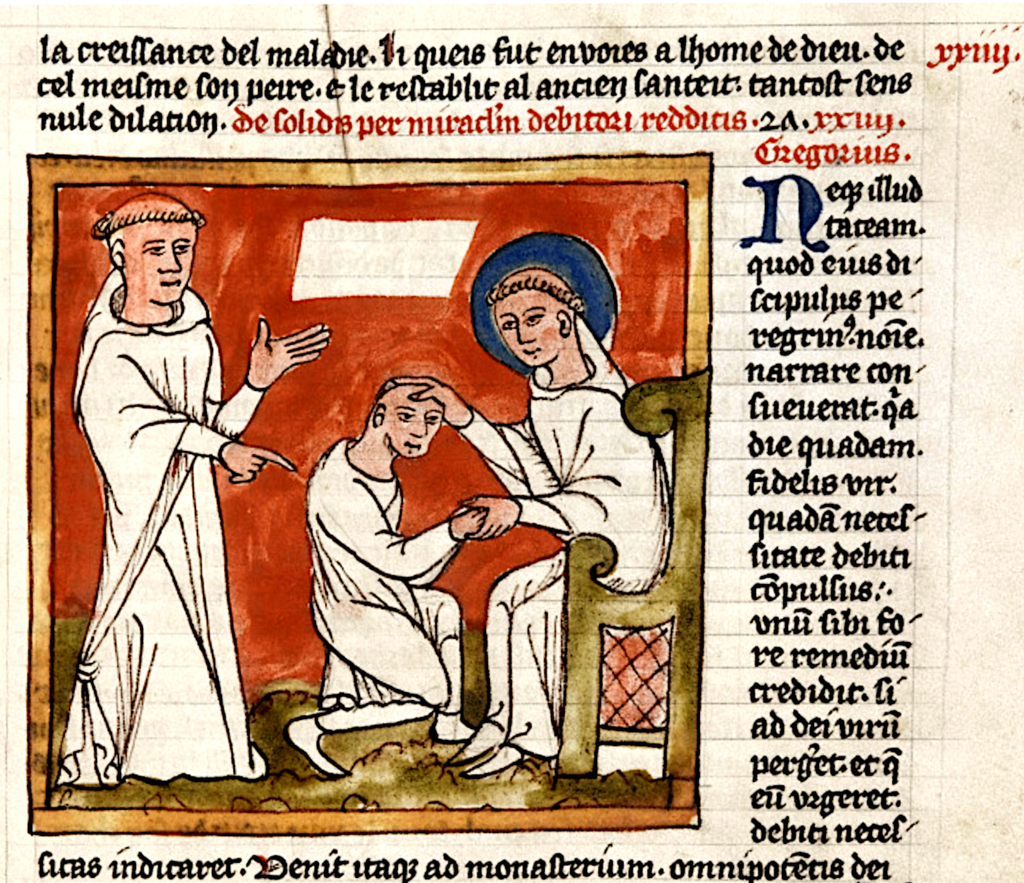 la creissance del maladie. li queis fut envoies a lhome de dieu. de
xxiiij.
cel meisme son peire. ⁊ le restablit al ancien santeit. tantost sens
nule dilation. De solidis per miraclm̄ debitori redditis. xxiiij.
Gregorius.
Neqꝫ illud
taceam.
quod eius di-
scipulus pe-
regrinꝰ. noīe.
narrare con-
sueuerat. qͥa
die quadam.
fidelis vir.
quadā neces-
sitate debiti
cōpulsus:.
vnū sibi fo-
re remediū
credidit. si
ad dei virū
perget. et q̄
eū vrgeret.
debiti neces-
sitas indicaret. Venit itaqꝫ ad monasterium. omnipotētis dei